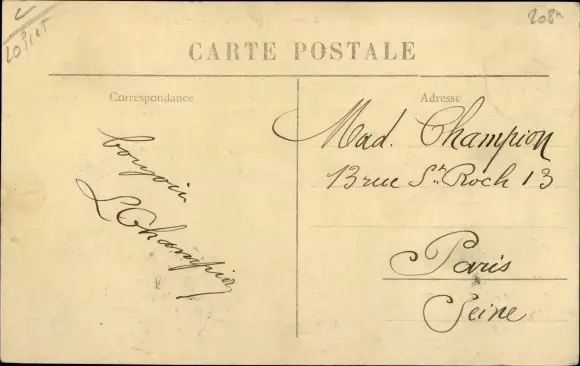 C
Loiret
208
CARTE POSTALE
Correspondance
Adresse
bonjoin
L Champion
Mad. Champion
13 rue St. Roch 13
Paris
Seine